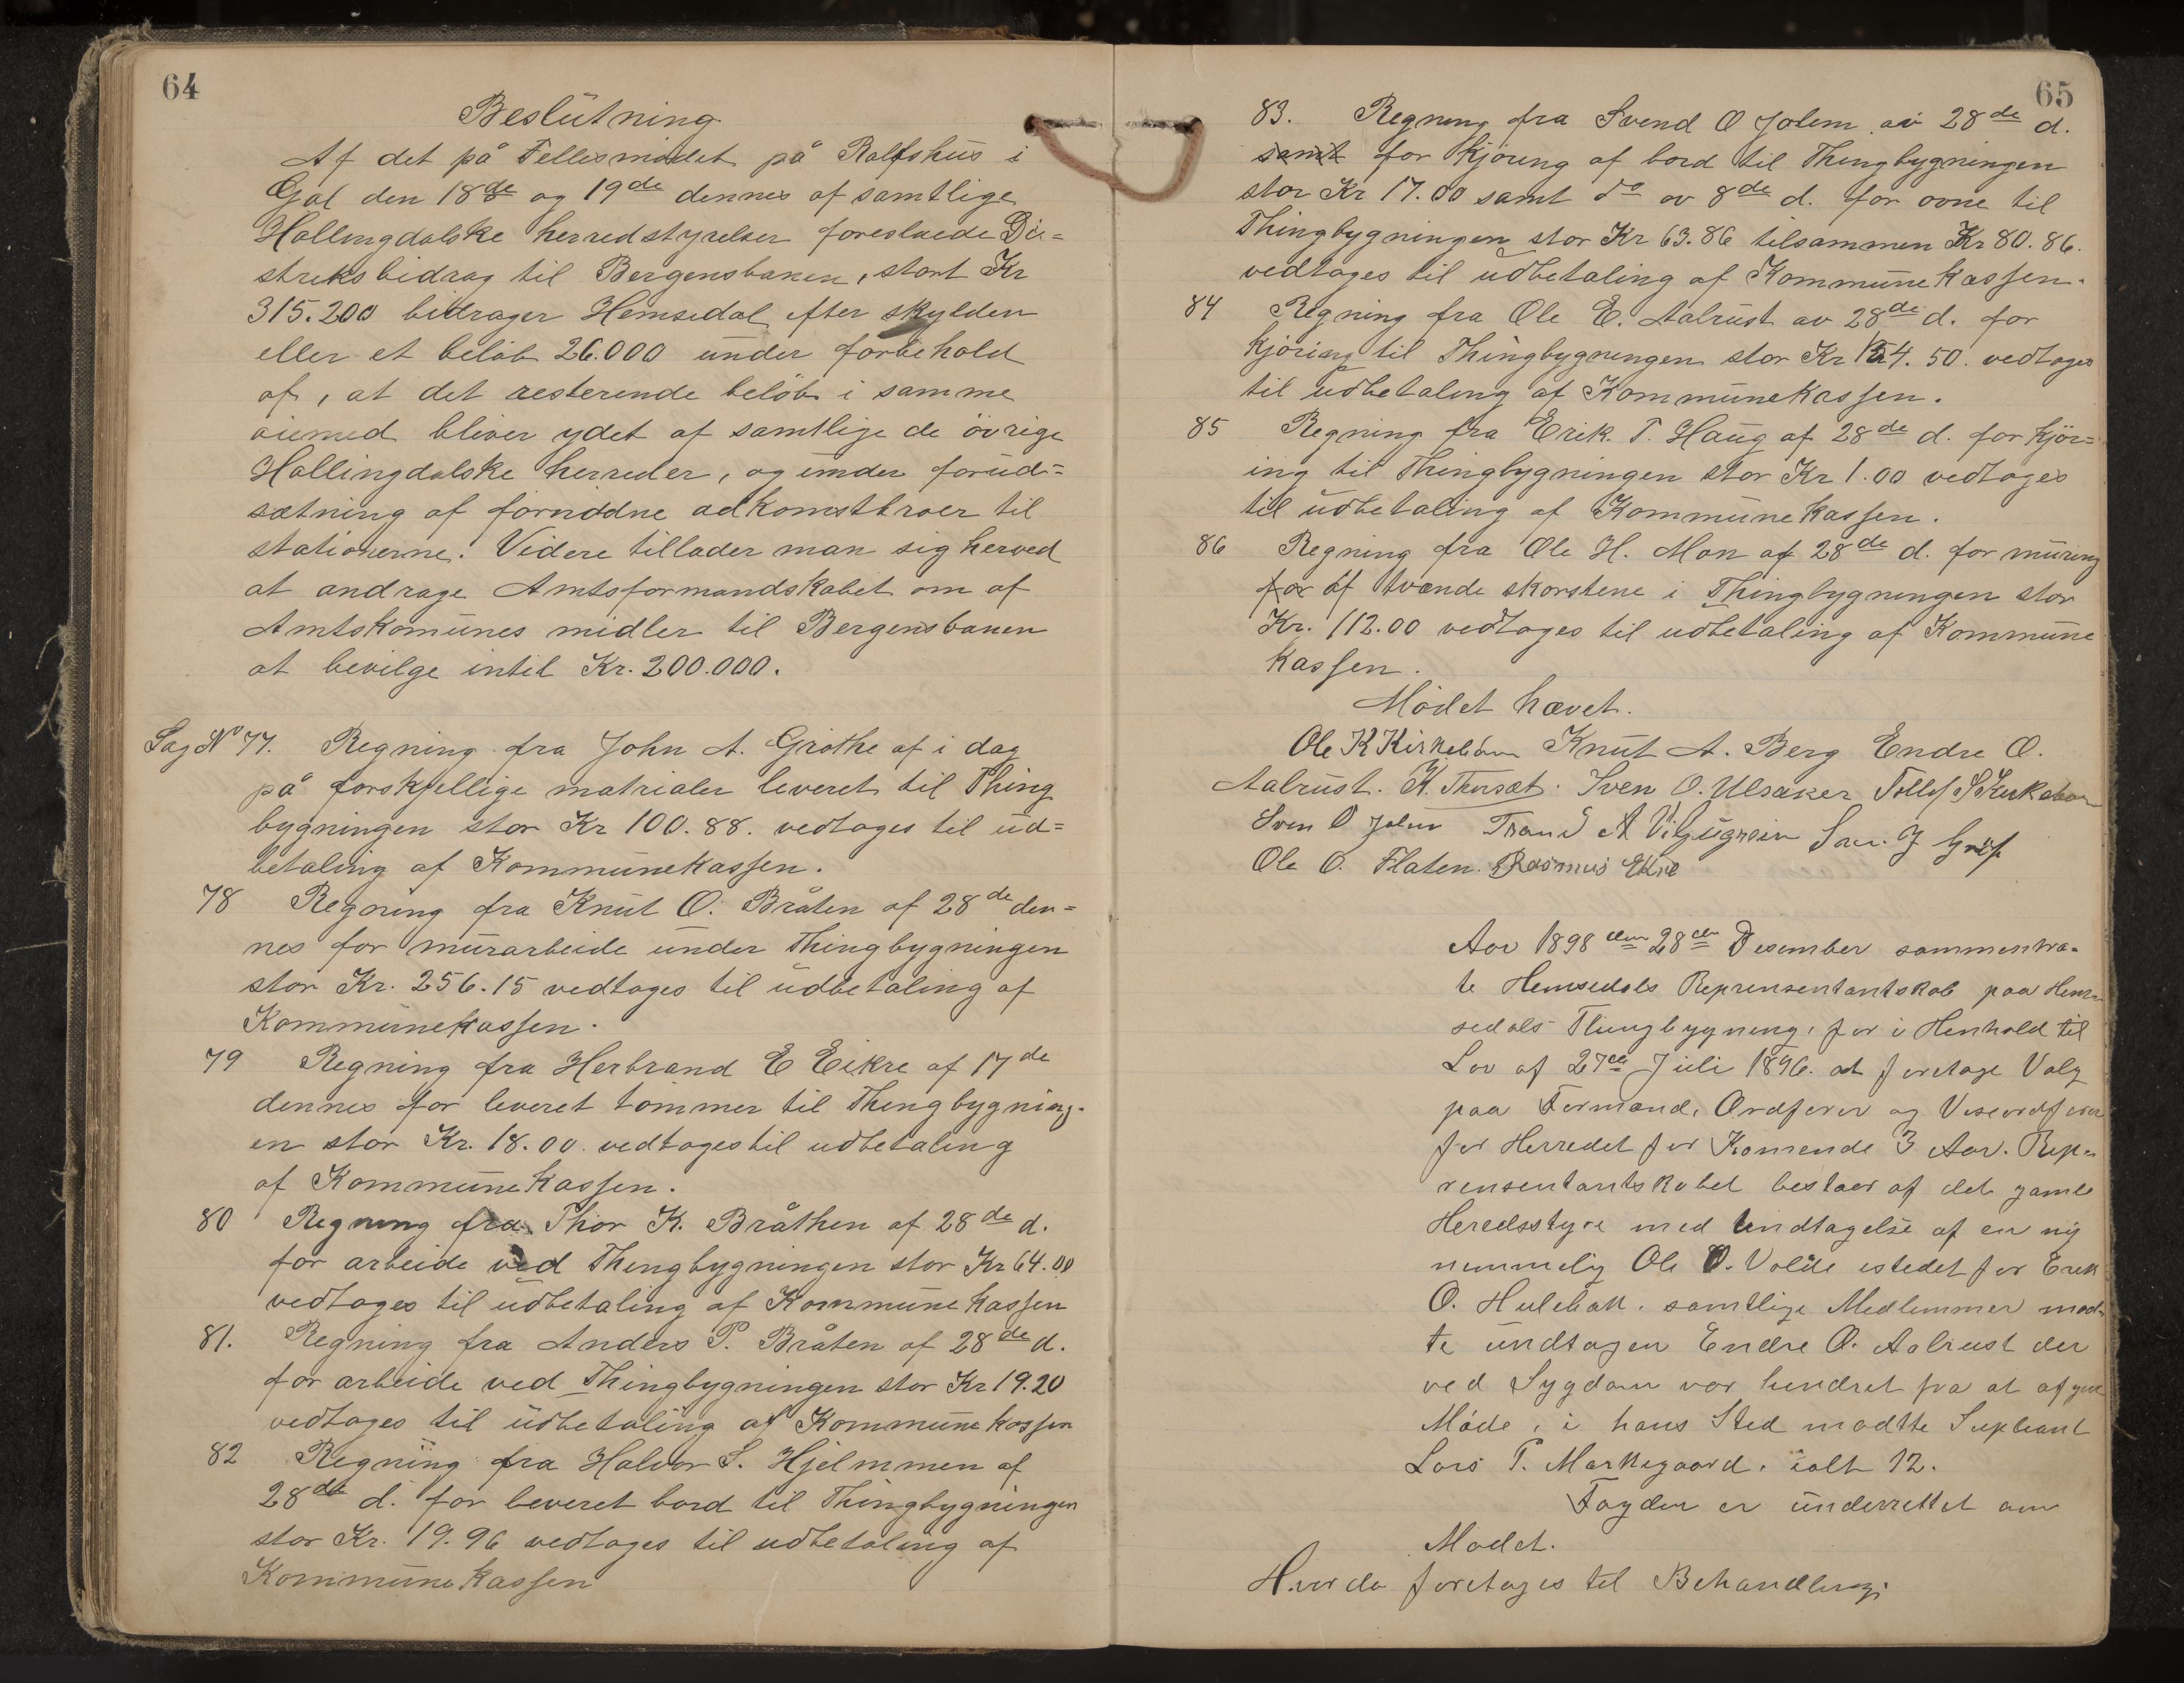 64
Beslutning
Af det på Fellesmødet på Rolfshus i
Gol den 18de og 19de dennes af samtlige
Hallingdalske herredstyrelser foreslaede Di-
striksbidrag til Bergensbanen, stort Kr
315.200 bidrager Hemsedal efter skylden
eller et beløb 26.000 under forbehold
af, at det resterende beløb i samme
øiemed bliver ydet af samtlige de øvrige
Hallingdalske herreder, og under forud=
sætning af fornødne adkomstbroer til
stationerne. Videre tillader man sig herved
at andrage Amtsformandskabet om af
Amtskomunes midler til Bergensbanen
at bevilge intil Kr. 200.000.
Sag No 77. Regning fra John A. Grøthe af i dag
på forskjellige matrialer leveret til Thing
bygningen stor Kr 100.88. vedtages til ud=
betaling af Kommunekassen.
78 Regning fra Knut O. Bråten af 28de den=
nes for murarbeide under Thingbygningen
stor Kr. 256.15 vedtages til udbetaling af
Kommunekassen.
79 Regning fra Herbrand E Eikre af 17de
dennes for leveret tømmer til Thingbygning-
en stor Kr. 18.00. vedtages til udbetaling
af Kommunekassen.
80 Regning fra Thor K. Bråthen af 28de d.
for arbeide ved Thingbygningen stor Kr 64.00
vedtages til udbetaling af Kommunekassen
81. Regning fra Anders P. Bråten af 28de d.
for arbeide ved Thingbygningen stor Kr 19.20
vedtages til udbetaling af Kommunekassen
82 Regning fra Halvor S. Hjelmmen af
28de d. for leveret bord til Thingbygningen
stor Kr. 19.96 vedtages til udbetaling af
Kommunekassen
65
83. Regning fra Svend O Jolem av 28de d.
samt for kjøring af bord til Thingbygningen
stor Kr 17.00 samt do av 8de d. for ovne til
Thingbygningen stor Kr 63.86 tilsammen Kr 80.86.
vedtages til udbetaling af Kommunekassen.
84 Regning fra Ole E. Aalrust av 28de d. for
kjøring til Thingbygningen stor Kr 154.50. vedtages
til udbetaling af Kommunekassen.
85 Regning fra Erik T. Haug af 28de d. for kjør=
ing til Thingbygningen stor Kr 1.00 vedtages
til udbetaling af Kommunekassen.
86 Regning fra Ole H. Mon af 28de d. for muring
for af tvænde skorstene i Thingbygningen stor
Kr. 112.00 vedtages til udbetaling af Kommune
kassen.
Mødet hævet.
Ole K Kirkebøen Knut A. Berg Endre O.
Aalrust. K. Thorset. Sven O. Ulsaker Tollef S Kirkebøen
Sven O Jolem Trond A
Ole O. Flaten. Rasmus Ekre
Aar 1898 den 28de Desember sammentraa-
te Hemsedals Reprensentantskab paa Hem-
sedals Thingbygning, for i Henhold til
Lov af 27de Juli 1896. at foretage Valg
paa Formand, Ordfører og Viseordfører
for Herredet for Komende 3 Aar. Rep-
rensentantskabet bestaar af det gamle
Heredsstyre med Undtagelse af en ny
nemmelig Ole O. Volde istedet for Erik
O. Hulebak. samtlige Medlemmer mød-
te undtagen Endre O. Aalrust der
ved Sygdom var hindret fra at
Møde, i hans Sted mødtte Supleant
Lars T. Markegaard. ialt 12.
Fogden er underrettet om
Mødet.
Hvorda foretages til Behandling: